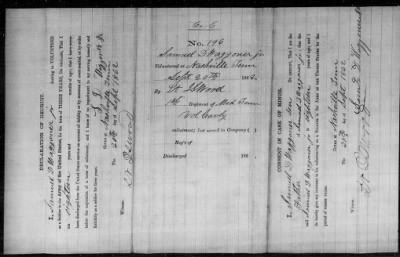 No. 196
Samuel D Waggoner jr
Volunteered at Nashville Tenn
Sept 20th 1862
By
Lt Elwood
1st Regiment of Mid Tenn
Vol Cavly
enlistment; last served in Company ( )
Reg't of
Discharged 186
DECLARATION OF RECRUIT.
I, Samuel D Waggoner jr desiring to VOLUNTEER
as a Soldier in the Army of the United States, for the term of THREE YEARS, Do declare, That I am
eighteen years and
have been discharged from the United States service on account of disability or by sentence of a court-martial, or by order
before the expiration of a term of enlistment; and I know of no impediment to my serving honestly and
faithfully as a soldier for three years.
Given at Nashville Tenn
The 20th day of Sept 1862
Witness:
CONSENT IN CASE OF MINOR.
I, Samuel D Waggoner Sen Do certify, That I am the
father of Samuel D Waggoner jr
that the said Samuel D Waggoner jr is eighteen years of age;
and I do hereby give my consent to his volunteering as a Soldier in the Army of the United States for the
period of three years.
Given at Nashville Tenn
The 20th day of Sept 1862
Witness: